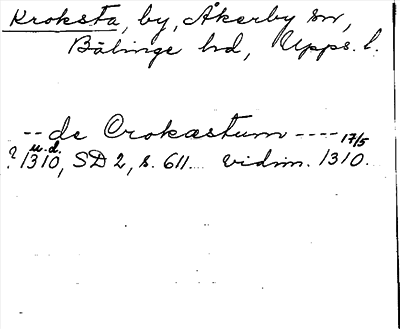 Kroksta, by, Åkerby sn,
Bälinge hd, Upps. l.
-- de Crokastum ----
? 1310, u.d. SD 2, s. 611. vidim. 17/5 1310.